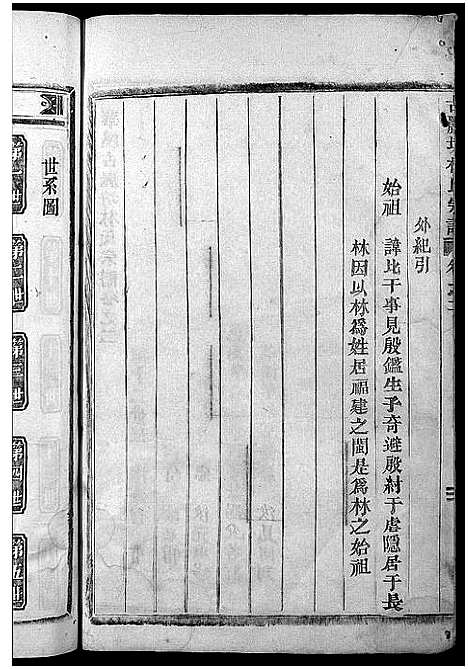 林氏宗譜
卷之二
外紀引
始祖　諱比干事見殷鑑生子奇避殷紂干虐隱居于長
林因以林爲姓居福建之閩是爲林之始祖
世系圖
第一世
第二世
第三世
第四世
第五世